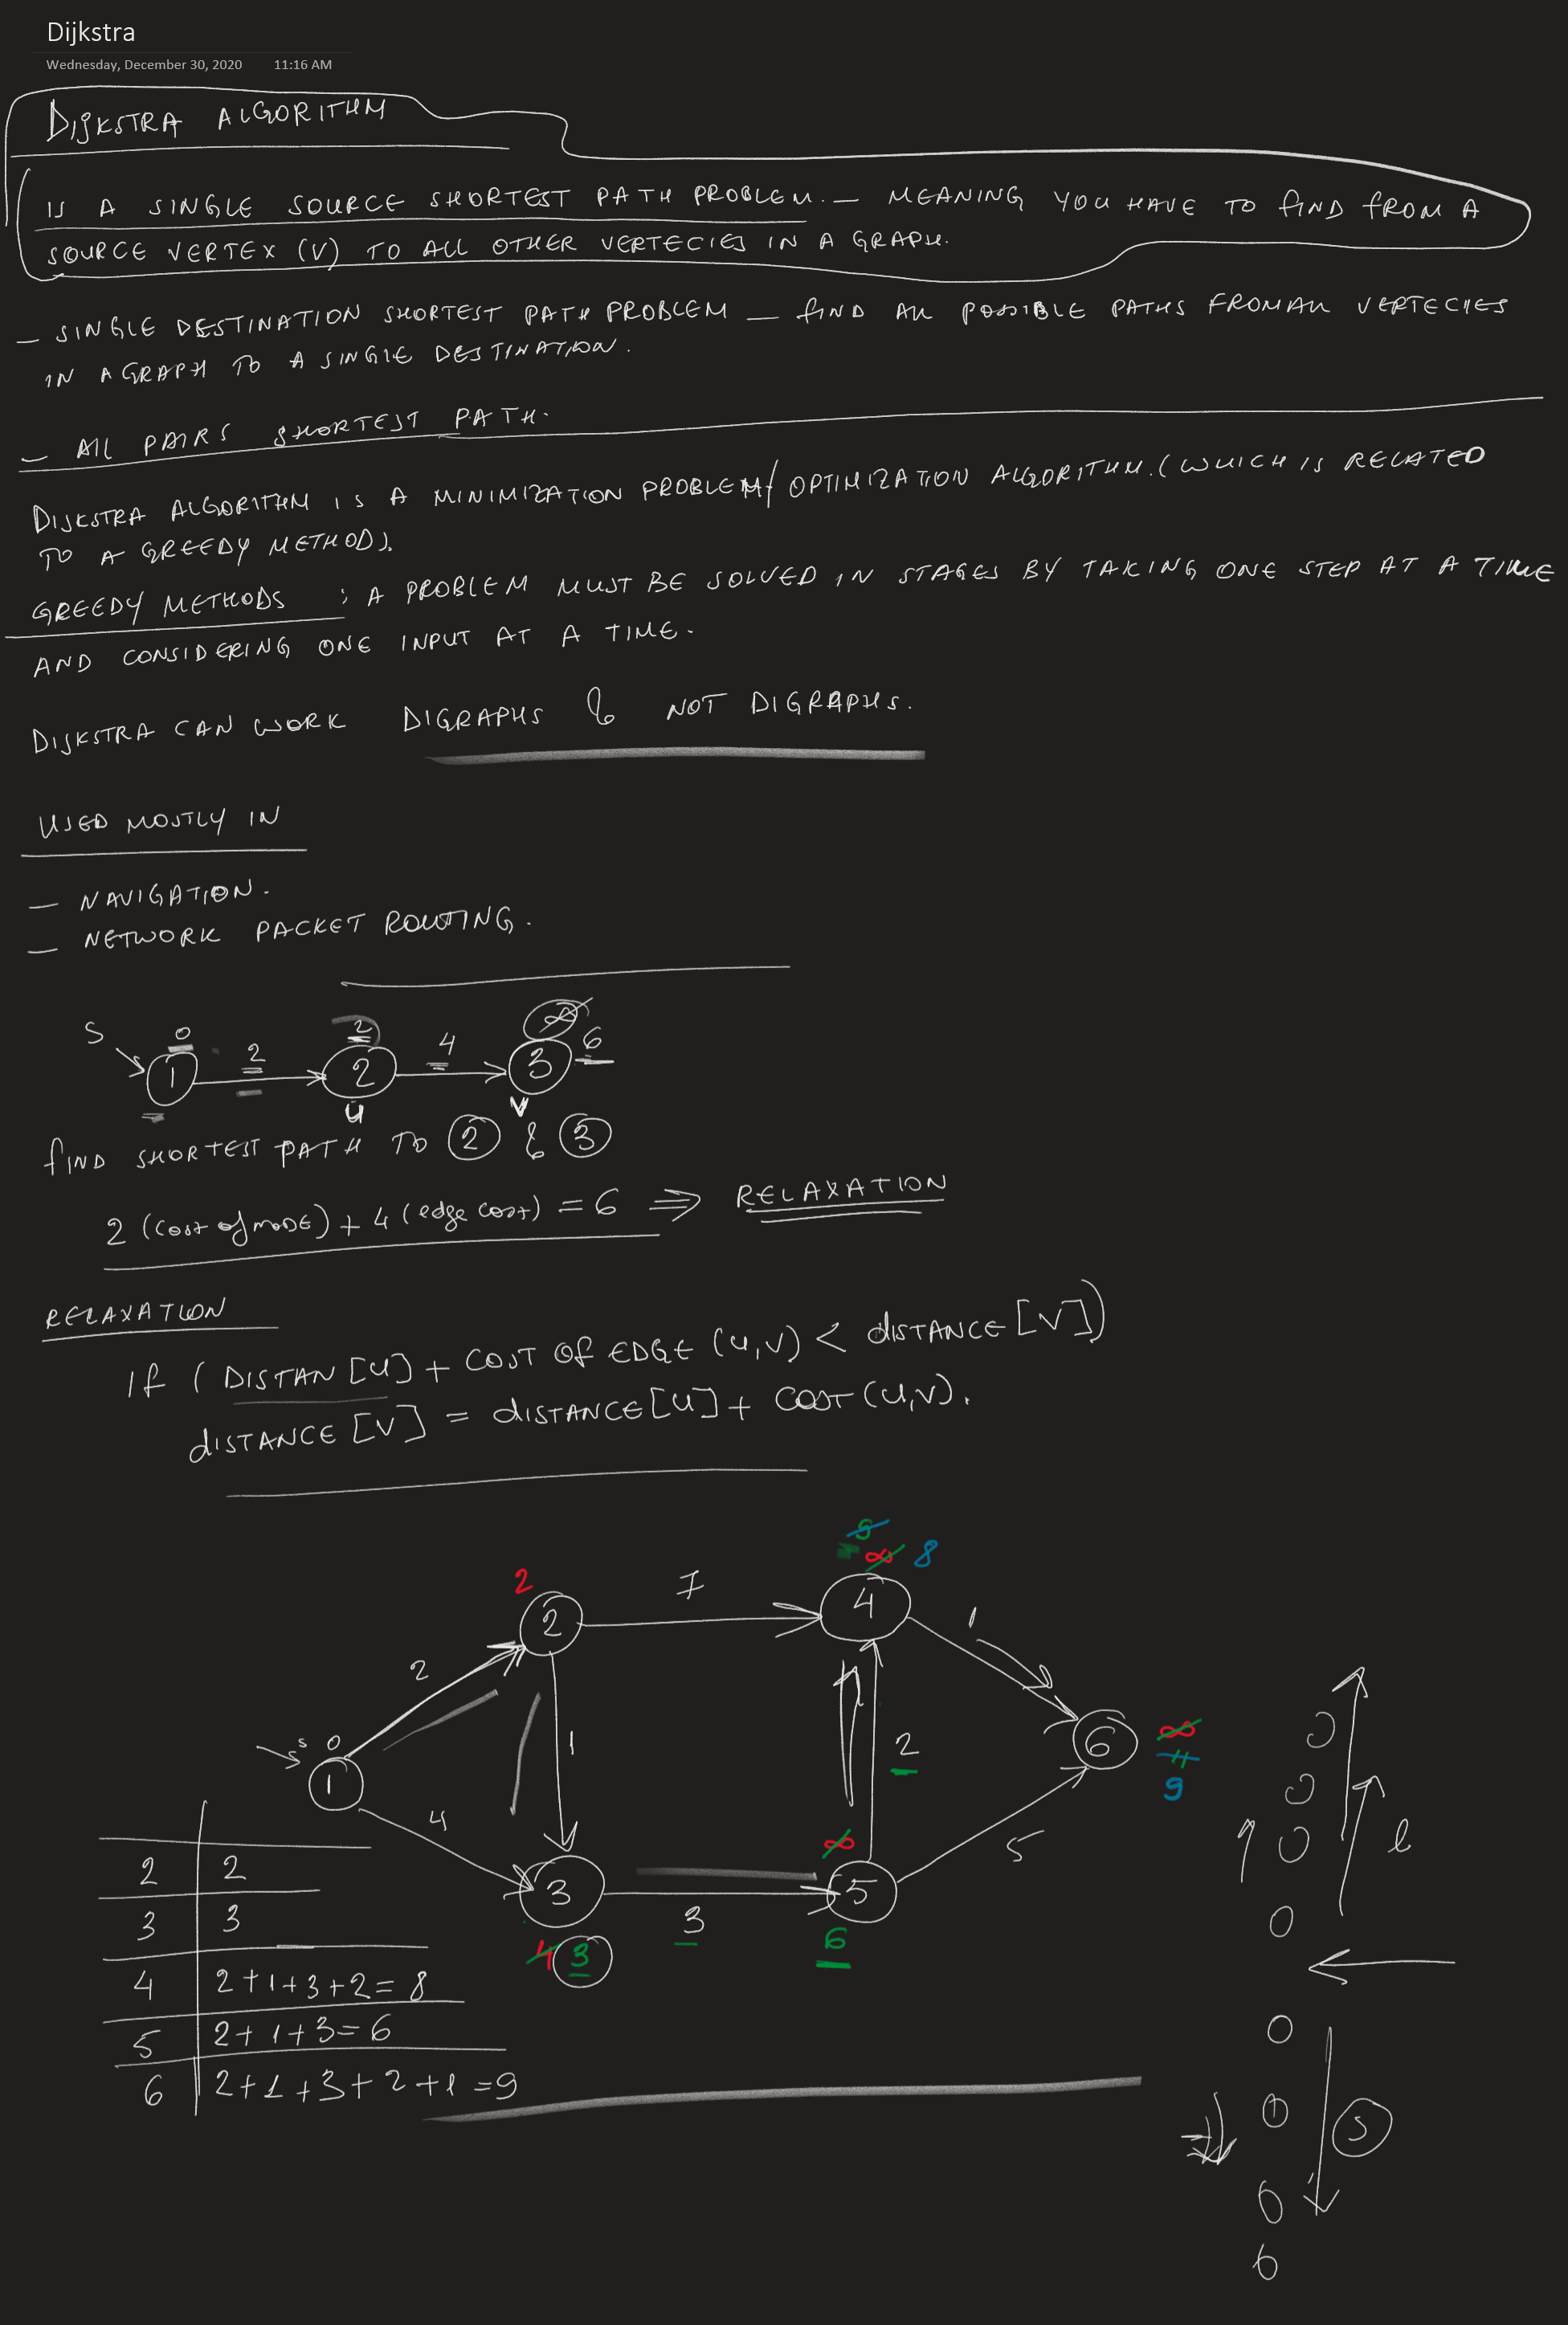 Dijkstra
Wednesday, December 30, 2020 11:16 AM
DIJKSTRA ALGORITHM
IS A SINGLE SOURCE SHORTEST PATH PROBLEM. — MEANING YOU HAVE TO FIND FROM A
SOURCE VERTEX (V) TO ALL OTHER VERTECIES IN A GRAPH.
— SINGLE DESTINATION SHORTEST PATH PROBLEM — FIND ALL POSSIBLE PATHS FROM ALL VERTECIES
IN A GRAPH TO A SINGLE DESTINATION.
— ALL PAIRS SHORTEST PATH.
DIJKSTRA ALGORITHM IS A MINIMIZATION PROBLEM/ OPTIMIZATION ALGORITHM. (WHICH IS RELATED
TO A GREEDY METHOD).
GREEDY METHODS : A PROBLEM MUST BE SOLVED IN STAGES BY TAKING ONE STEP AT A TIME
AND CONSIDERING ONE INPUT AT A TIME.
DIJKSTRA CAN WORK DIGRAPHS & NOT DIGRAPHS.
USED MOSTLY IN
— NAVIGATION.
— NETWORK PACKET ROUTING.
S 0 2 2 4 ∞ 6
1 2 3
U V
FIND SHORTEST PATH TO 2 & 3
2 (cost of node) + 4 (edge cost) = 6 ⇒ RELAXATION
RELAXATION
If ( DISTAN [U] + COST OF EDGE (U,V) < DISTANCE [V])
DISTANCE [V] = DISTANCE [U] + COST (U,V).
9
2 7 ∞ 8
2 4
2 1
1 2 6 ∞
11
9
S 0
1
4 5
∞
3 5
3
4 3 6
2 2
3 3
4 2+1+3+2=8
5 2+1+3=6
6 2+1+3+2+1=9
0
0
0 l
0
0
0 S
0
6